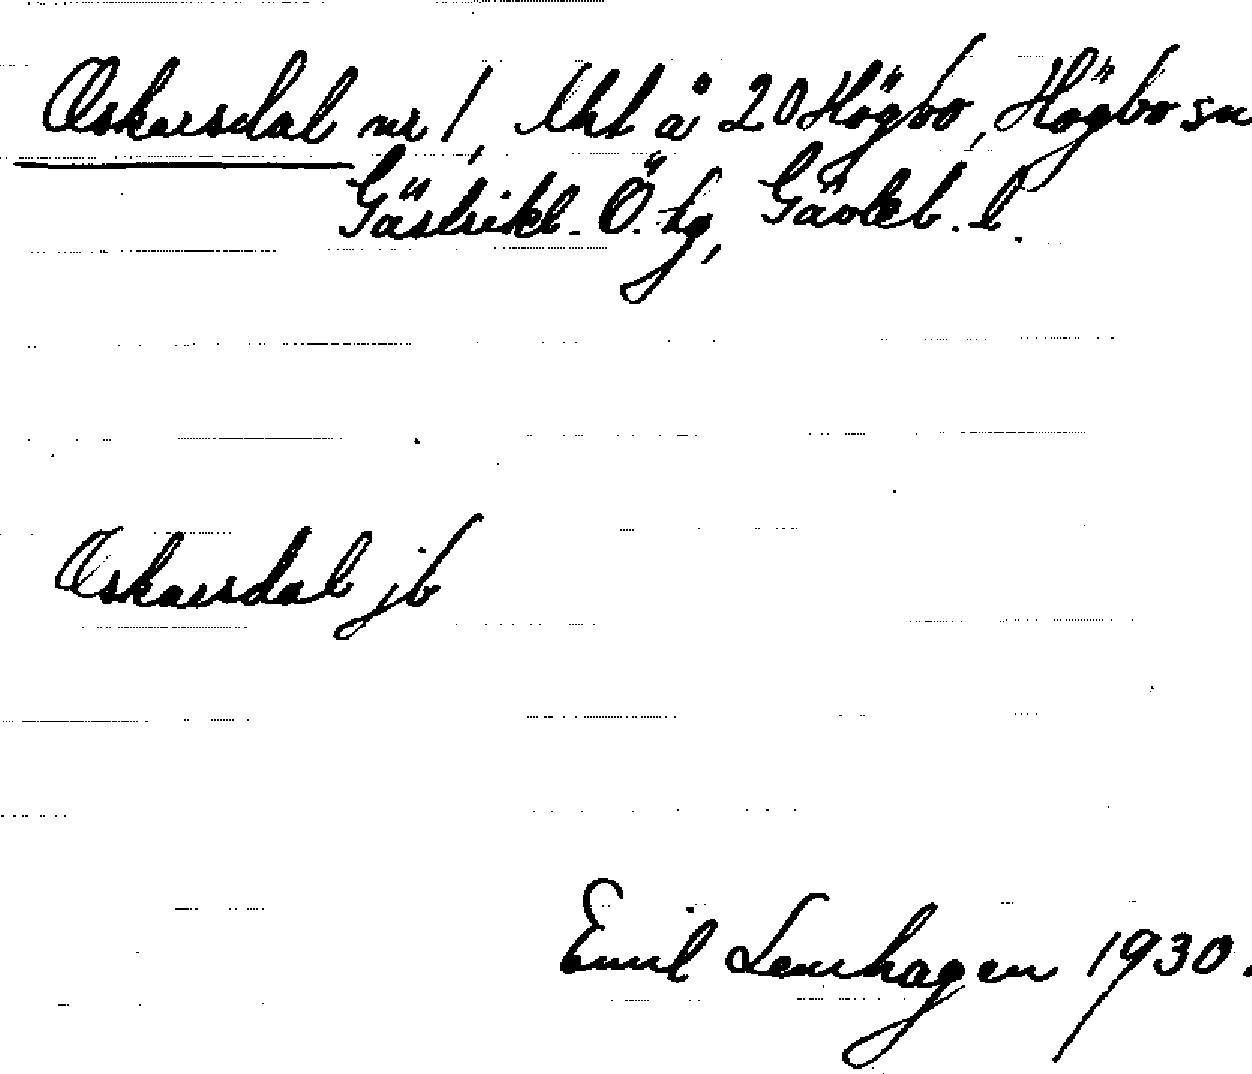 Oskarsdal nr 1, lht å 20 Högbo, Högbo sn
Gästrikl. Ö. hg, Gävleb. l.
Oskarsdal jb
Emil Lenhagen 1930.